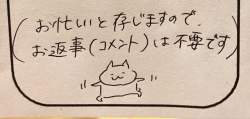 (お忙しいと存じますので、
お返事(コメント)は不要です)